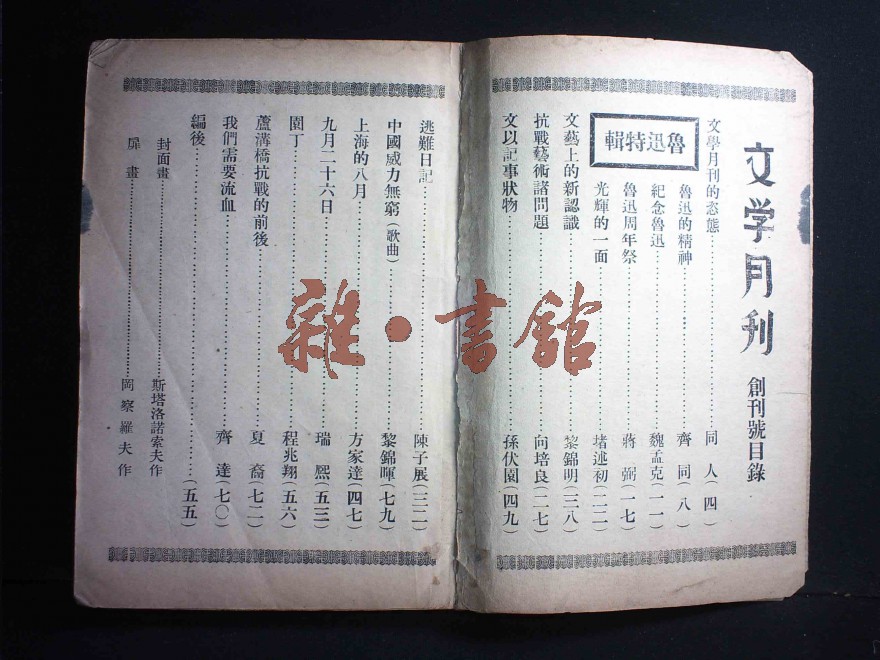 文学月刊 創刊號目錄
文學月刊的态態………同人(四)
魯迅特輯
魯迅的精神………齊同(八)
紀念魯迅………魏孟克(一一)
魯迅周年祭………蔣弼(一七)
光輝的一面………堵述初(二二)
文藝上的新認識………黎錦明(三八)
抗戰藝術諸問題………向培良(二七)
文以記事狀物………孫伏園(四九)
逃難日記………陳子展(三二)
中國威力無窮(歌曲)………黎錦暉(七九)
上海的八月………方家達(四七)
九月二十六日………瑞熙(五三)
園丁………程兆翔(五六)
蘆溝橋抗戰的前後………夏裔(七二)
我們需要流血………齊達(七〇)
編後………(五五)
封面畫………斯塔洛諾索夫作
扉畫………岡察羅夫作
雜·書館